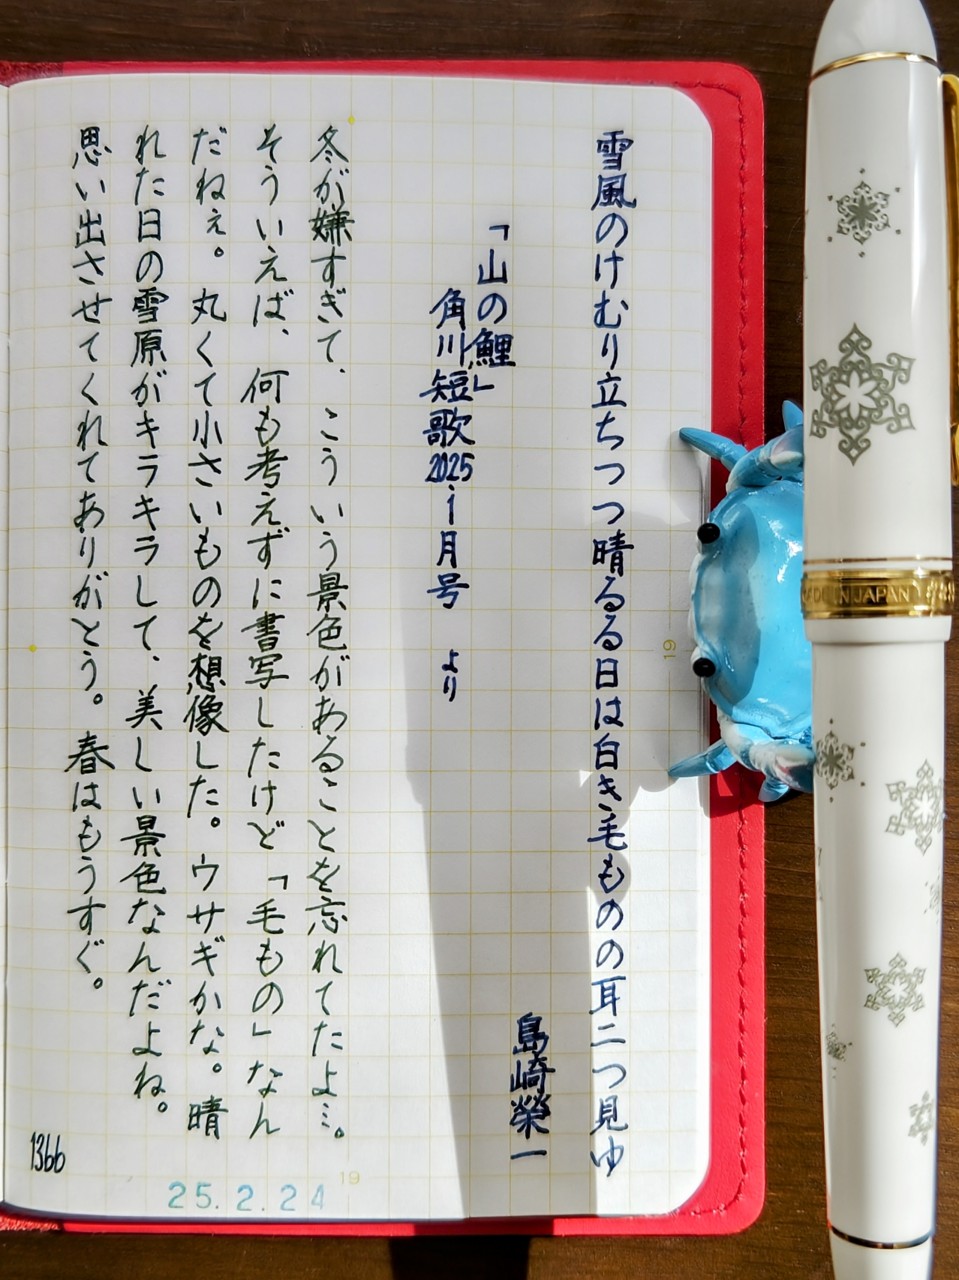 雪風のけむり立ちつつ晴るる日は白き毛ものの耳二つ見ゆ
島崎榮一
「山の鯉」
角川短歌2025.1月号 より
冬が嫌すぎて、こういう景色があることを忘れてたよ…。
そういえば、何も考えずに書写したけど「毛もの」なん
だねぇ。丸くて小さいものを想像した。ウサギかな。晴
れた日の雪原がキラキラして、美しい景色なんだよね。
思い出させてくれてありがとう。春はもうすぐ。
1366
25.2.24
19
19
JAPAN